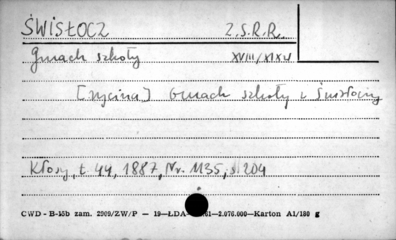 ŚWISŁOCZ Z.S.R.R.
Gmach szkoły XVIII/XIX w
[rycina] Gmach szkoły w Świsłoczy
Kłosy, t. 44, 1887, Nr. 1135, s. 204
CWD - B-15b zam. 2909/ZW/P — 19—ŁDA- 61—2.076.000—Karton A1/180 g